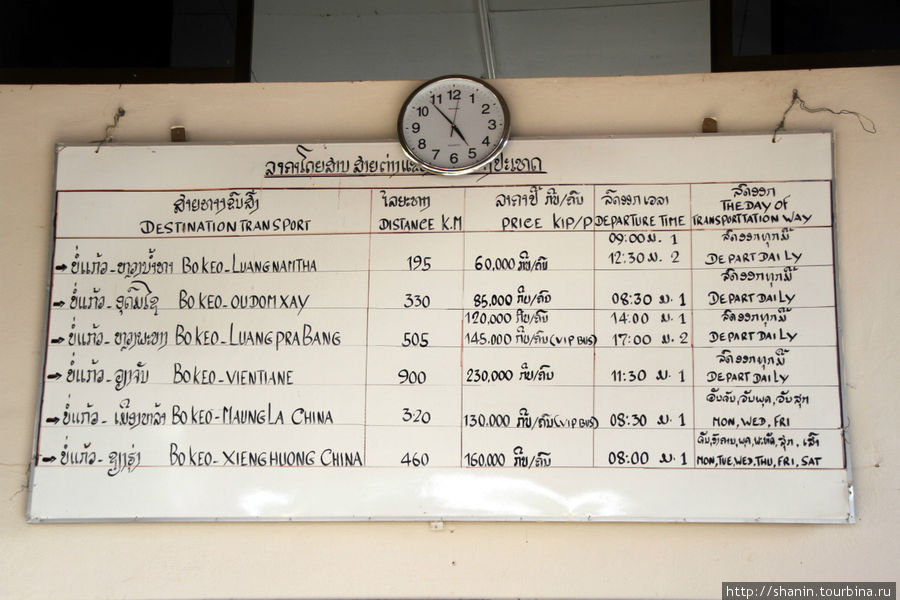 ສາຍທາງຂົນສົ່ງ ໄລຍະທາງ ລາຄາປີ້ ກີບ/ຄົນ ລົດອອກ ເວລາ ລົດອອກ
DESTINATION TRANSPORT DISTANCE K.M PRICE KIP/P DEPARTURE TIME THE DAY OF TRANSPORTTATION WAY
09:00 ມ. 1 ລົດອອກທຸກມື້
ບໍ່ແກ້ວ - ຫຼວງນ້ຳທາ BOKEO - LUANGNAMTHA 195 60,000 ກີບ/ຄົນ 12:30 ມ. 2 DEPART DAILY
ລົດອອກທຸກມື້
ບໍ່ແກ້ວ - ອຸດົມໄຊ BOKEO - OUDOMXAY 330 85,000 ກີບ/ຄົນ 08:30 ມ. 1 DEPART DAILY
120,000 ກີບ/ຄົນ 14:00 ມ. 1 ລົດອອກທຸກມື້
ບໍ່ແກ້ວ - ຫຼວງພະບາງ BOKEO - LUANG PRABANG 505 145,000 ກີບ/ຄົນ (VIP BUS) 17:00 ມ. 2 DEPART DAILY
ລົດອອກທຸກມື້
ບໍ່ແກ້ວ - ວຽງຈັນ BOKEO - VIENTIANE 900 230,000 ກີບ/ຄົນ 11:30 ມ. 1 DEPART DAILY
ວັນຈັນ, ວັນພຸດ, ວັນສຸກ
ບໍ່ແກ້ວ - ເມືອງຫລ້າ BOKEO - MAUNGLA CHINA 320 130,000 ກີບ/ຄົນ (VIP BUS) 08:30 ມ. 1 MON, WED, FRI
ຈັນ, ອັງຄານ, ພຸດ, ພະຫັດ, ສຸກ, ເສົາ
ບໍ່ແກ້ວ - ຊຽງຮຸ່ງ BOKEO - XIENGHUONG CHINA 460 160,000 ກີບ/ຄົນ 08:00 ມ. 1 MON, TUE, WED, THU, FRI, SAT
http://shanin.tourbina.ru